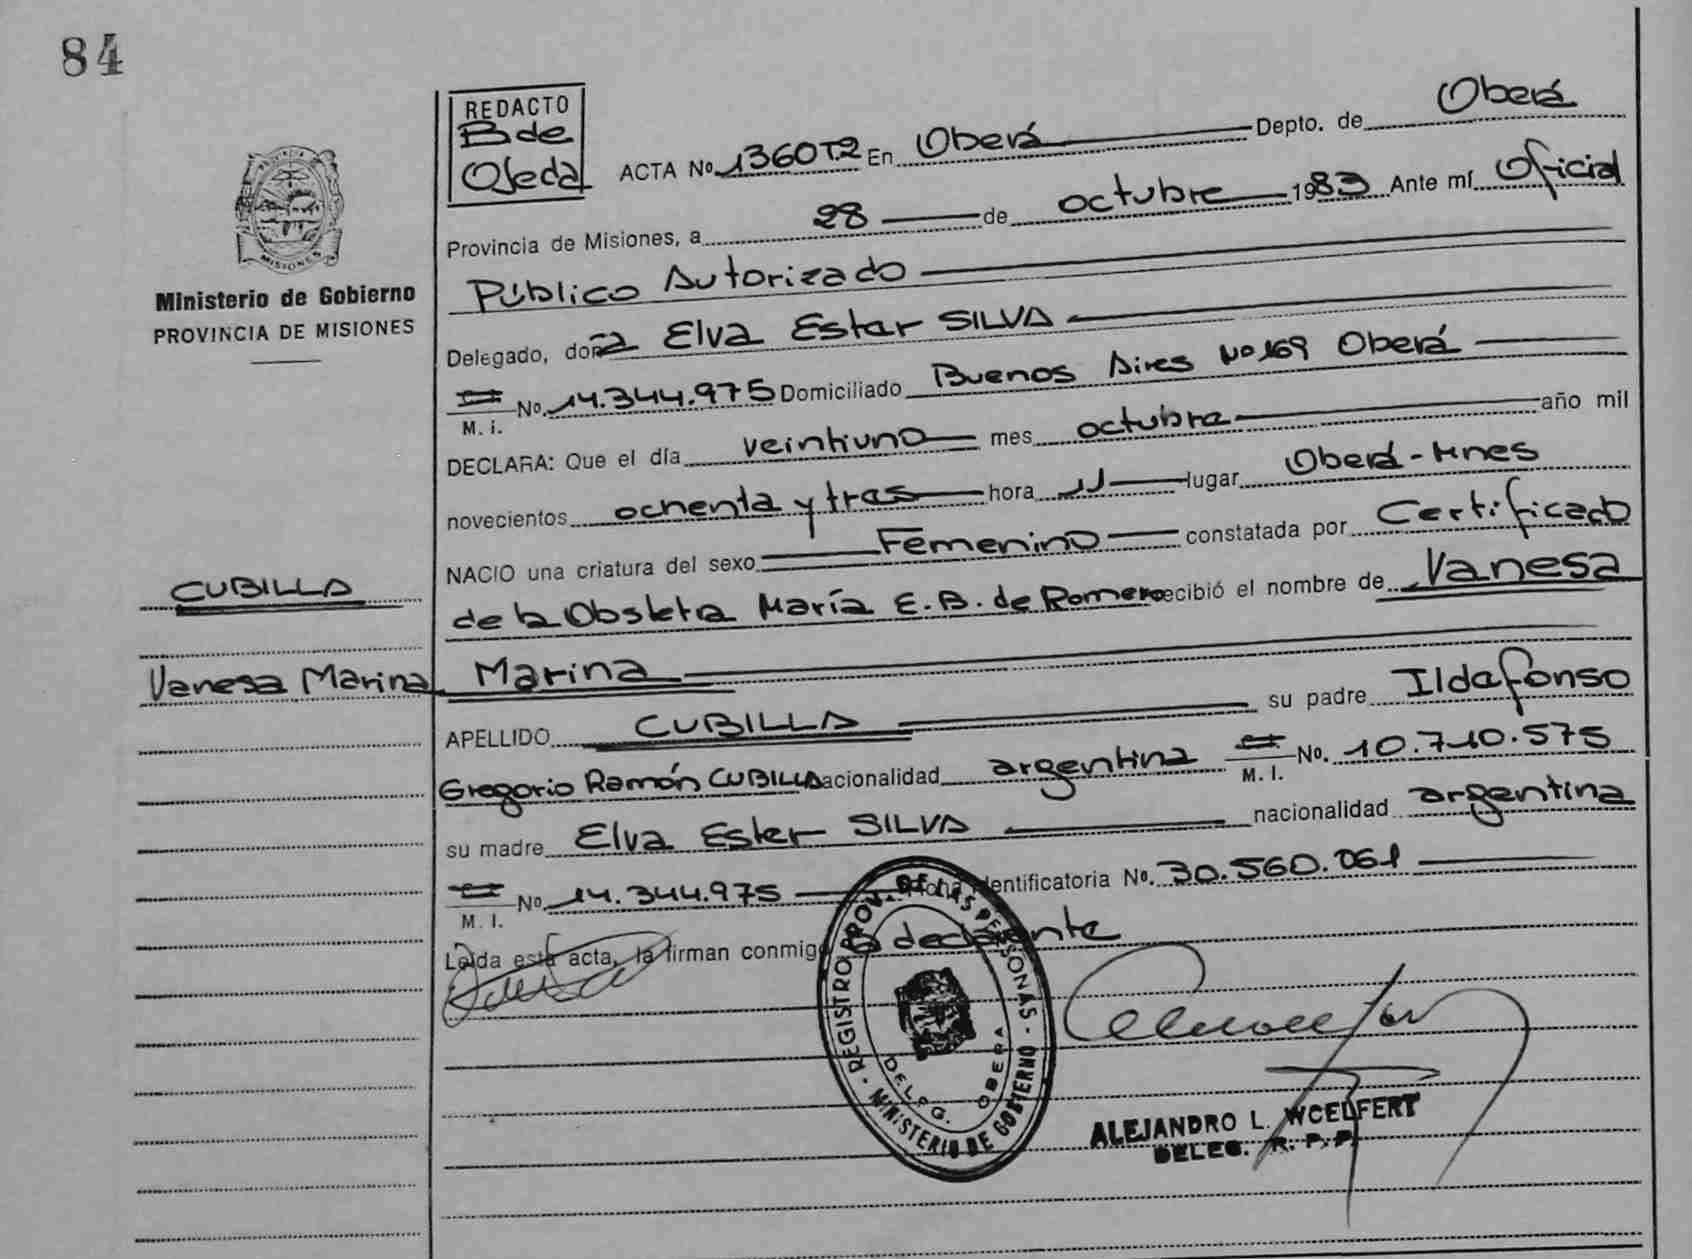 84
REDACTO
B de
Ojeda
ACTA No. 1360T2 En Oberá Depto. de Oberá
Provincia de Misiones, a 28 de octubre 1983 Ante mí Oficial
Público Autorizado
Delegado, doña Elva Ester SILVA
M. i. No. 14.344.975 Domiciliado Buenos Aires No 169 Oberá
DECLARA: Que el día veintiuno mes octubre año mil
novecientos ochenta y tres hora 11 lugar Oberá - Mnes
NACIO una criatura del sexo Femenino constatada por Certificado
de la Obstetra María E. B. de Romero recibió el nombre de Vanesa
Marina
APELLIDO CUBILLA su padre Ildafonso
Gregorio Ramón CUBILLA nacionalidad argentina M. I. No. 10.710.575
su madre Elva Ester SILVA nacionalidad argentina
M. I. No. 14.344.975 Ficha identificatoria No. 30.560.061
Leída esta acta, la firman conmigo declarante
PROVINCIA DE
MISIONES
Ministerio de Gobierno
PROVINCIA DE MISIONES
CUBILLA
Vanesa Marina
REGISTRO PROV. DE LAS PERSONAS - MINISTERIO DE GOBIERNO -
DELEG. OBERA
ALEJANDRO L. WOELFERT
DELEG. R. P. P.